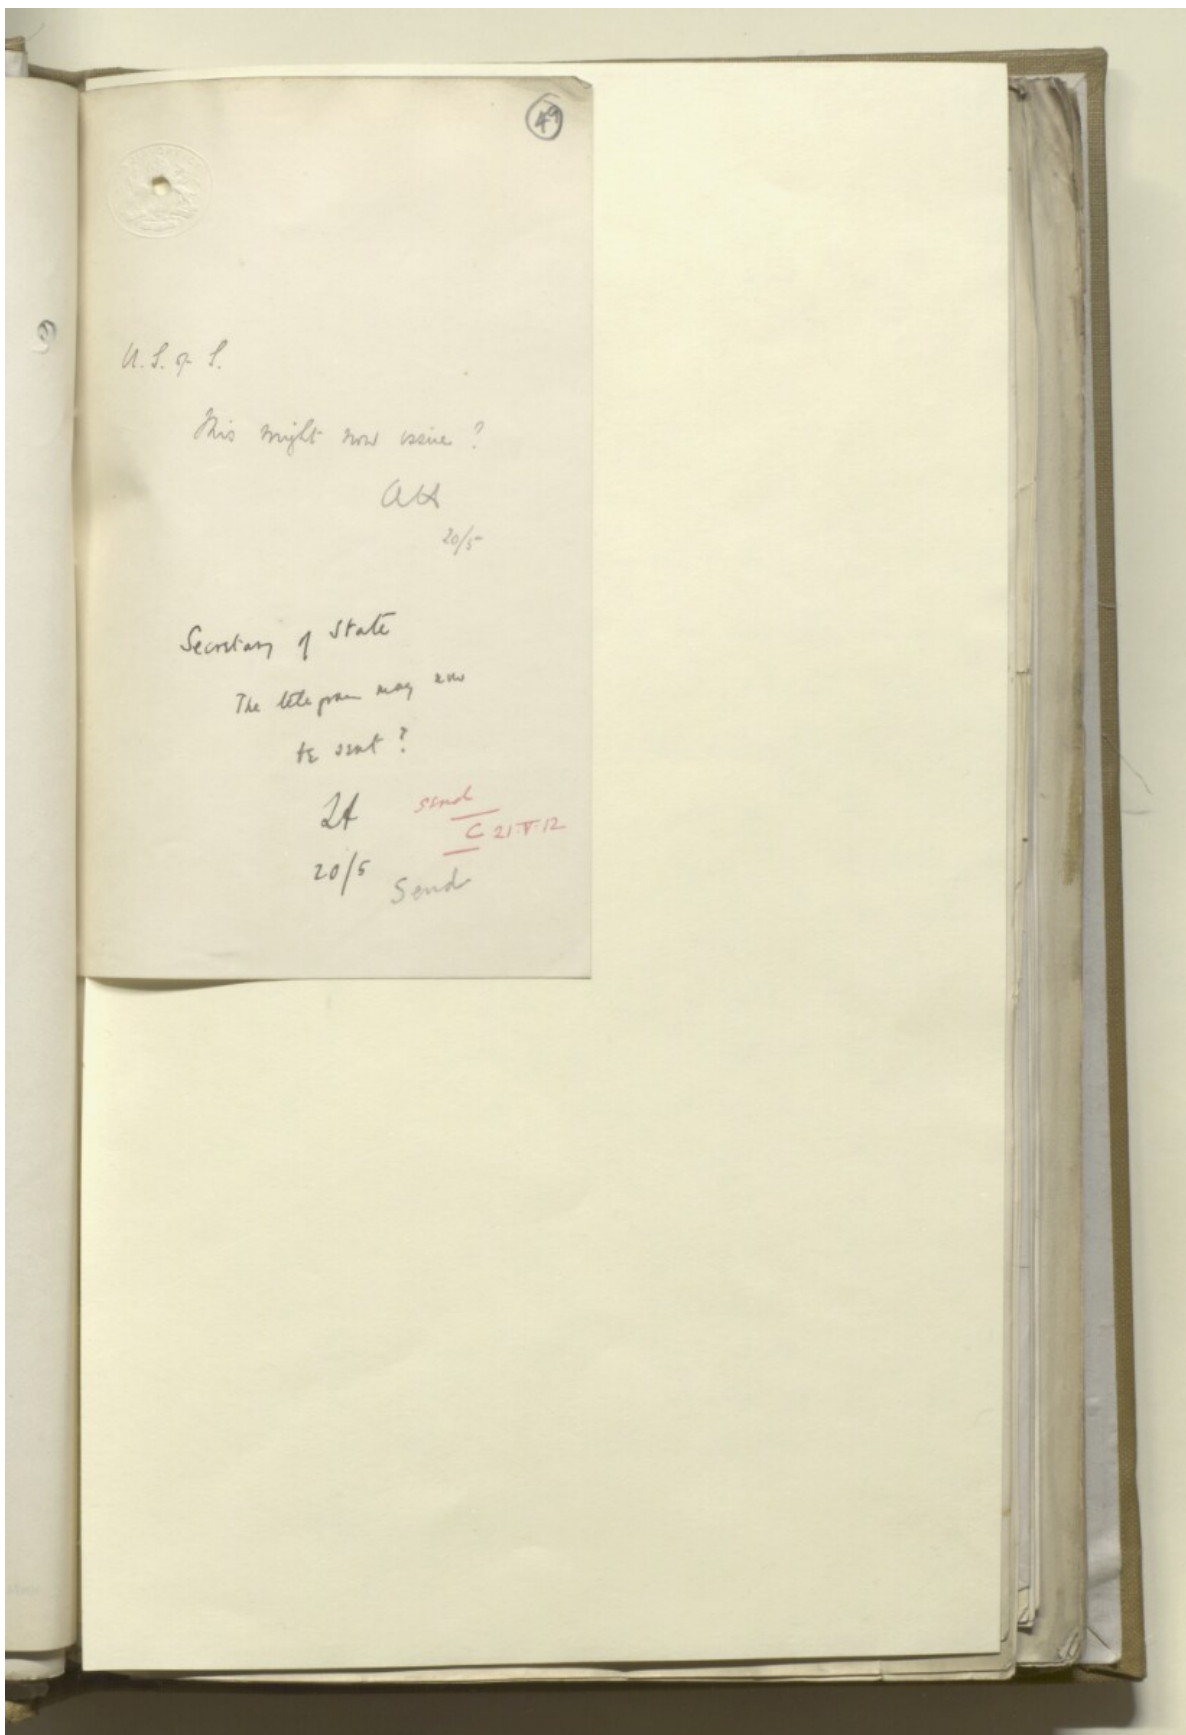 49
U. S. of S.
This might now issue?
AH
20/5
Secretary of State
The telegram may now
be sent?
20/5
Send
C 21.V.12
Send